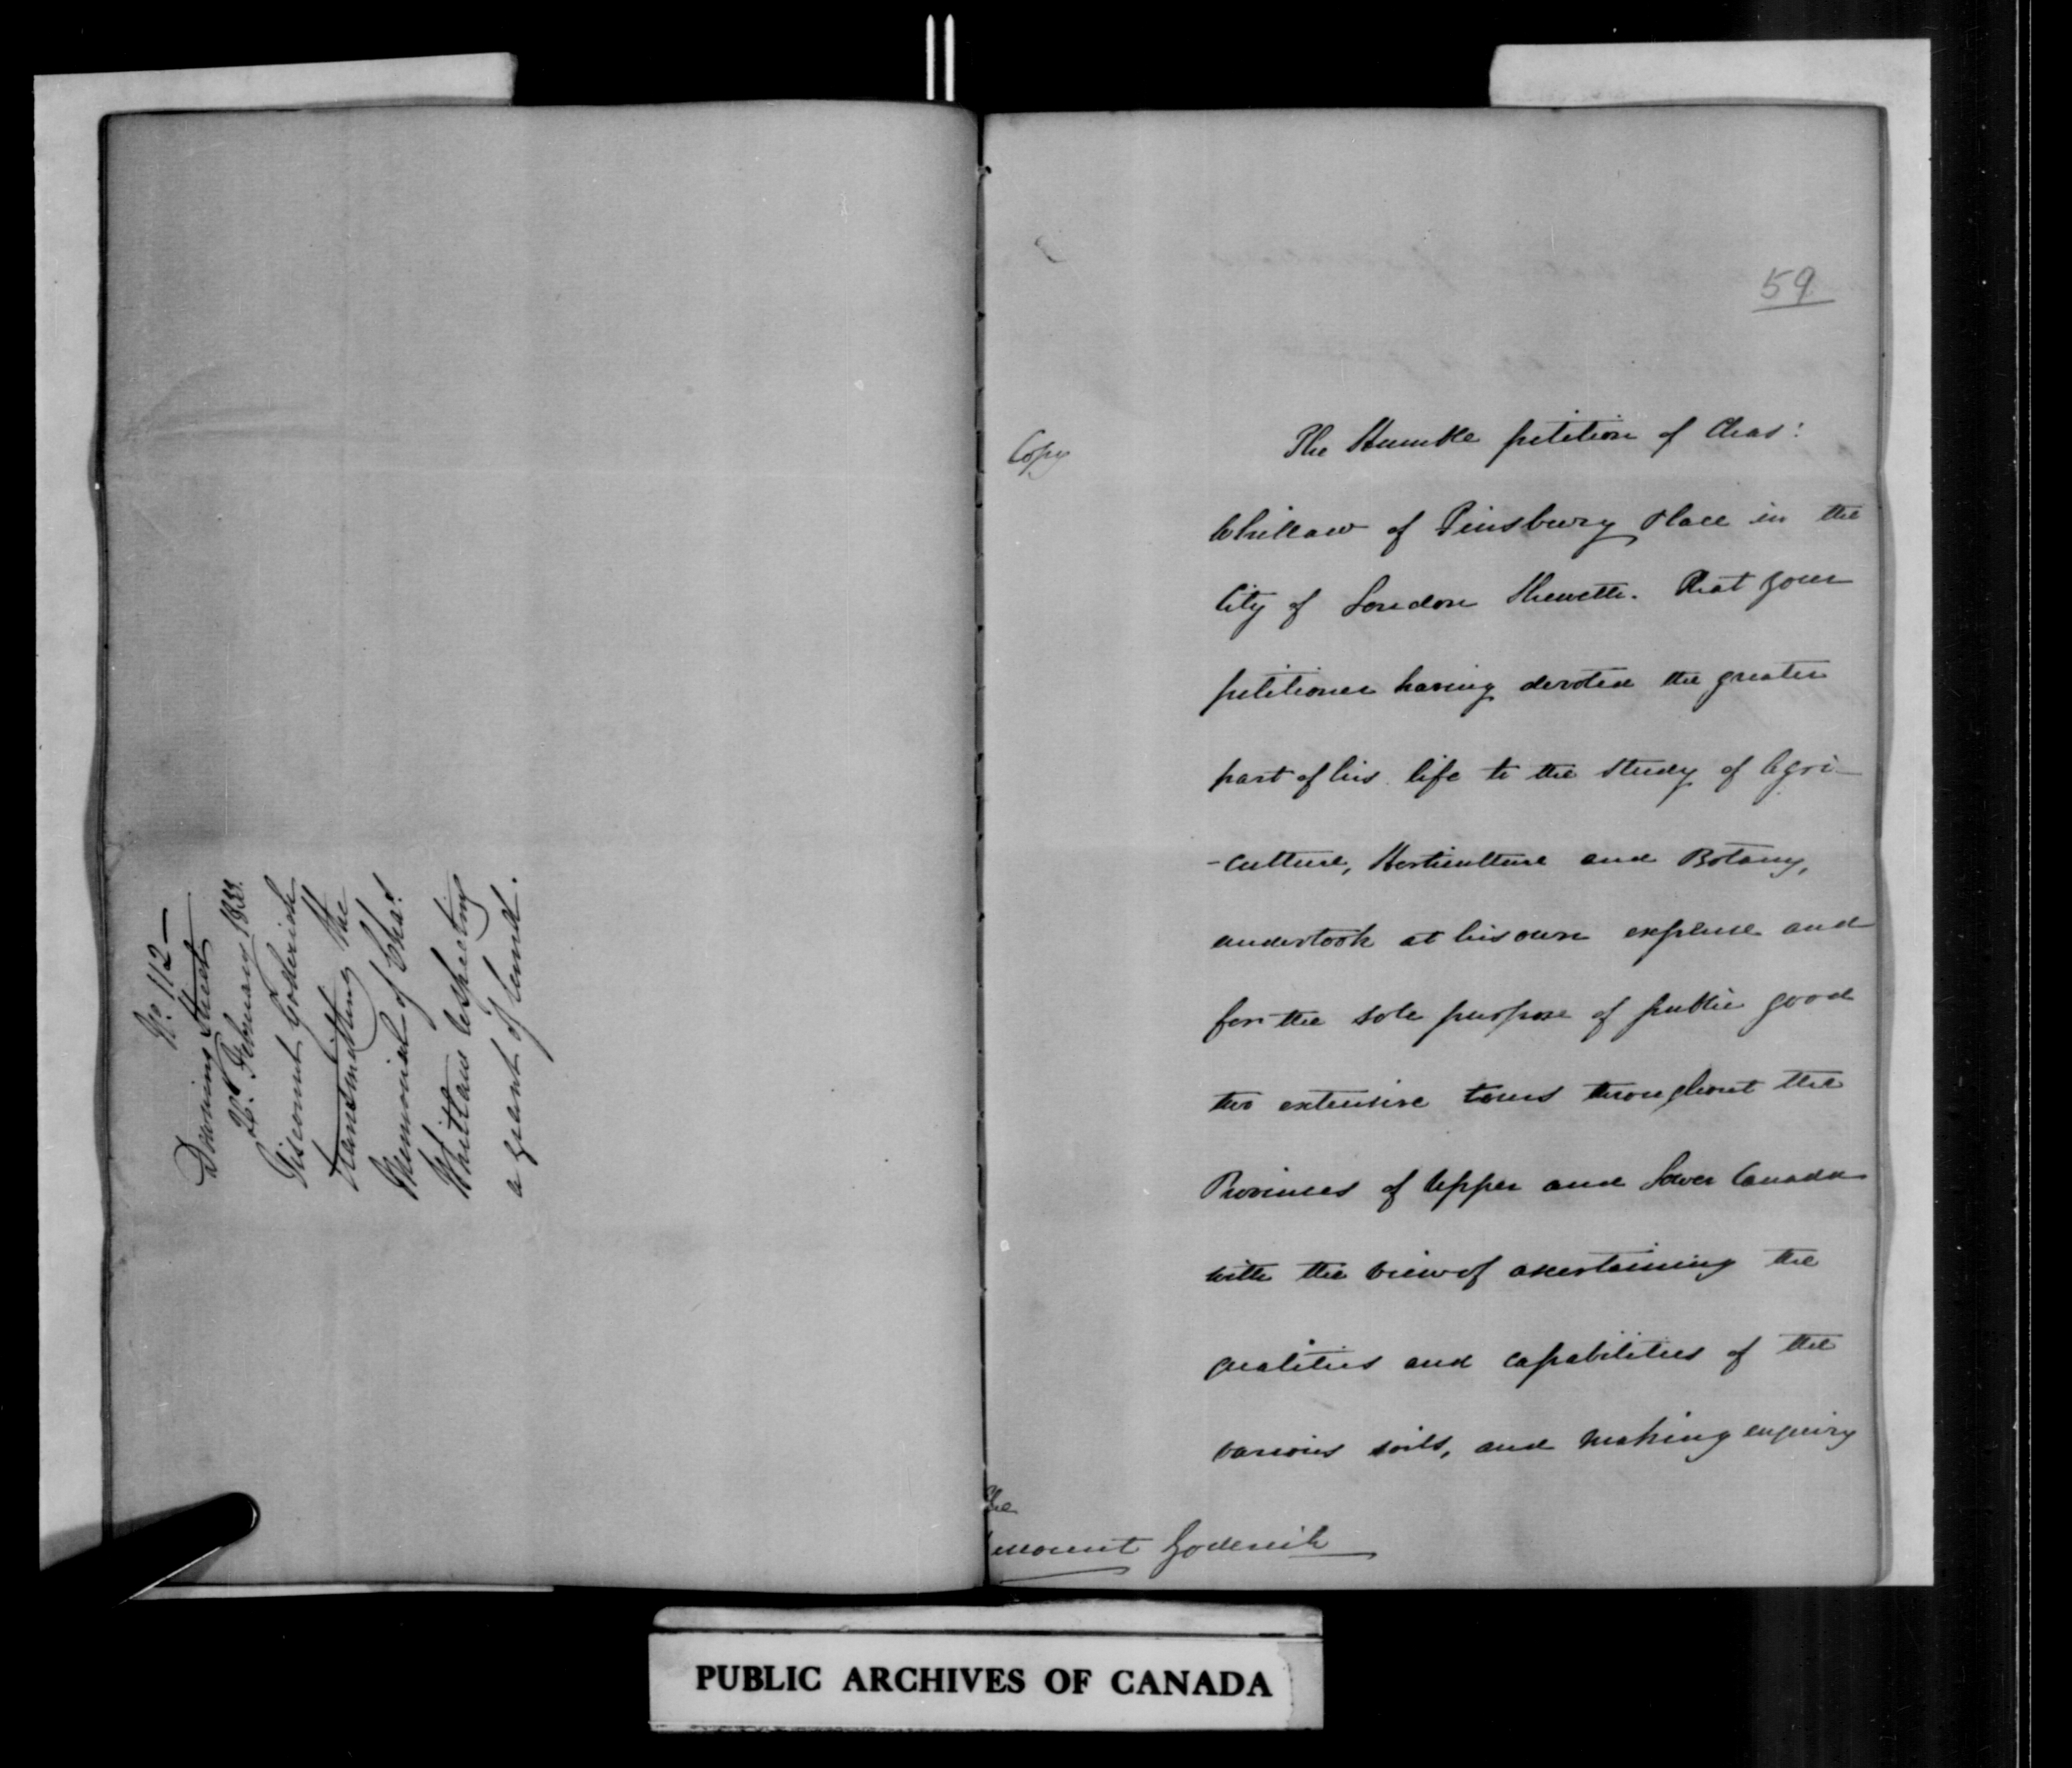 No. 112 —
Downing Street
February 1833
Viscount Goderich
transmitting the
Memorial of Chas.
Whitlaw respecting
a grant of land.
59
Copy
The Humble petition of Chas:
Whitlaw of Finsbury Place in the
City of London Sheweth. That your
petitioner having devoted the greater
part of his life to the study of Agri-
-culture, Horticulture and Botany,
undertook at his own expense and
for the sole purpose of public good
two extensive tours throughout the
Provinces of Upper and Lower Canada
with the view of ascertaining the
qualities and capabilities of the
various soils, and making enquiry
The
iscount Goderich
PUBLIC ARCHIVES OF CANADA